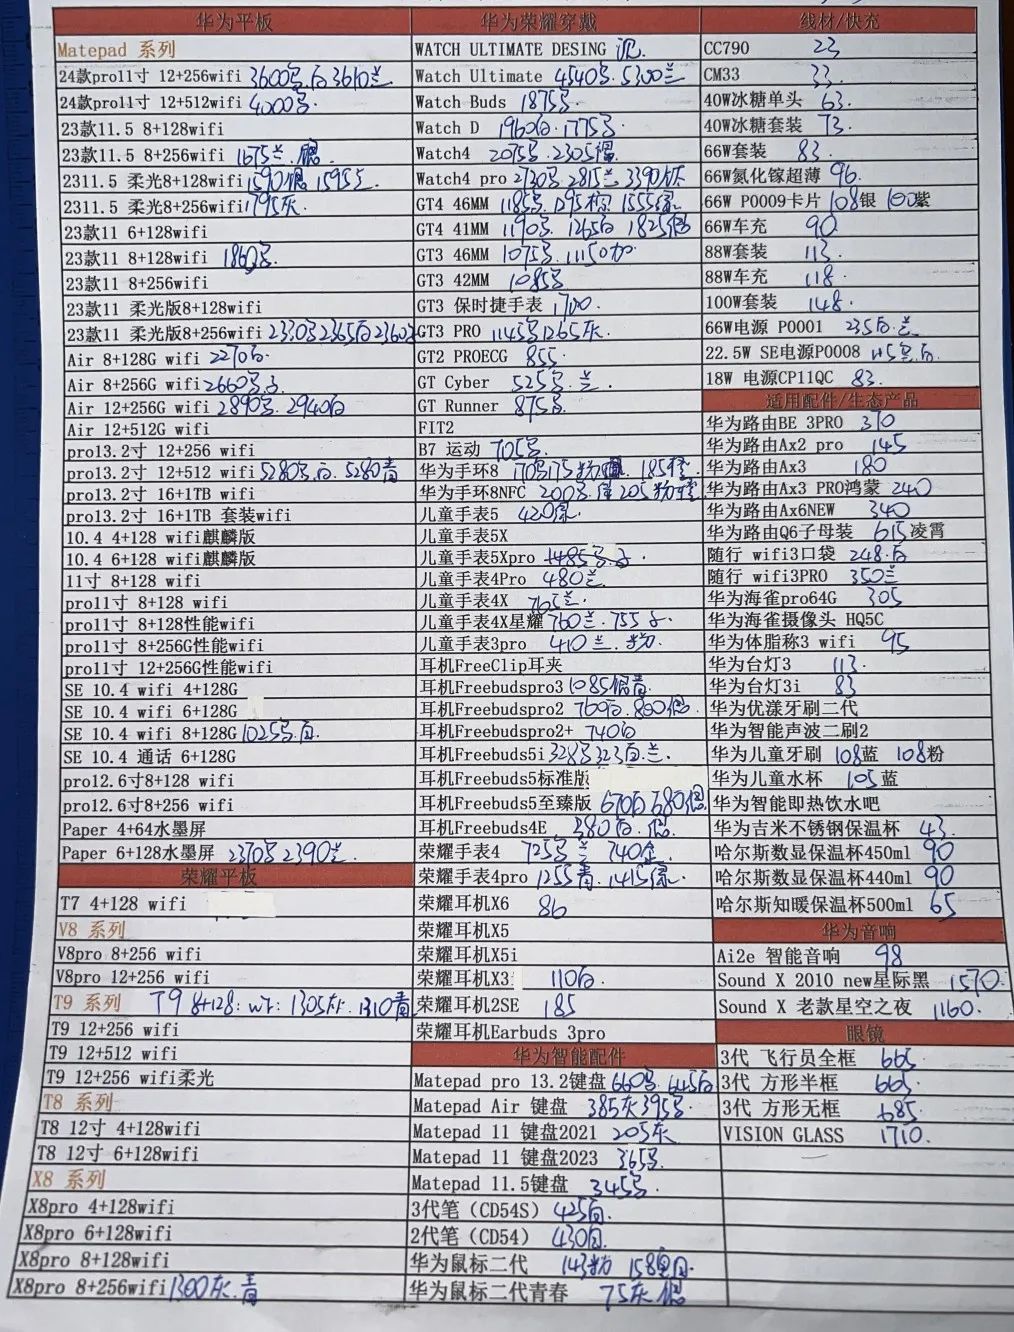 华为平板
Matepad 系列
24款pro11寸 12+256wifi 3600 白 3610兰
24款pro11寸 12+512wifi 4000
23款11.5 8+128wifi
23款11.5 8+256wifi 1675兰.
2311.5 柔光8+128wifi 1590银 1595
2311.5 柔光8+256wifi 1795灰
23款11 6+128wifi
23款11 8+128wifi
23款11 8+256wifi
23款11 柔光版8+128wifi
23款11 柔光版8+256wifi 2330 2365白 2360
Air 8+128G wifi 2270白
Air 8+256G wifi 2660
Air 12+256G wifi 2890 2940白
Air 12+512G wifi
pro13.2寸 12+256 wifi
pro13.2寸 12+512 wifi 5280 白. 5280青
pro13.2寸 16+1TB wifi
pro13.2寸 16+1TB 套装wifi
10.4 4+128 wifi麒麟版
10.4 6+128 wifi麒麟版
11寸 8+128 wifi
pro11寸 8+128 wifi
pro11寸 8+128性能wifi
pro11寸 8+256G性能wifi
pro11寸 12+256G性能wifi
SE 10.4 wifi 4+128G
SE 10.4 wifi 6+128G
SE 10.4 wifi 8+128G 1025 白
SE 10.4 通话 6+128G
pro12.6寸8+128 wifi
pro12.6寸8+256 wifi
Paper 4+64水墨屏
Paper 6+128水墨屏 2370 2390兰.
荣耀平板
T7 4+128 wifi
V8 系列
V8pro 8+256 wifi
V8pro 12+256 wifi
T9 系列 T9 8+128: wf: 1305灰. 1310青
T9 12+256 wifi
T9 12+512 wifi
T9 12+256 wifi柔光
T8 系列
T8 12寸 4+128wifi
T8 12寸 6+128wifi
X8 系列
X8pro 4+128wifi
X8pro 6+128wifi
X8pro 8+128wifi
X8pro 8+256wifi 1300灰.青
华为荣耀穿戴
WATCH ULTIMATE DESING
Watch Ultimate 4540 . 5300兰
Watch Buds 1875
Watch D 1960白. 1775
Watch4 2075 . 2305棕
Watch4 pro 2730 2815兰 3390
GT4 46MM 1185 1295棕 1555绿
GT4 41MM 1190 1265白 1825银
GT3 46MM 1075 .1115
GT3 42MM 1085
GT3 保时捷手表 1700.
GT3 PRO 1145 1265灰
GT2 PROECG 855.
GT Cyber 525 . 兰.
GT Runner 875
FIT2
B7 运动 705
华为手环8 170 175粉 185橙
华为手环8NFC 200 . 205粉橙
儿童手表5 420绿.
儿童手表5X
儿童手表5Xpro 1485
儿童手表4Pro 480兰
儿童手表4X 765兰.
儿童手表4X星耀 760兰. 755
儿童手表3pro 410兰. 粉.
耳机FreeClip耳夹
耳机Freebudspro3 1085银青
耳机Freebudspro2 760白. 800银.
耳机Freebudspro2+ 740白
耳机Freebuds5i 328 323白.兰.
耳机Freebuds5标准版
耳机Freebuds5至臻版 670白 680银
耳机Freebuds4E 380白. 银.
荣耀手表4 725 兰 740金
荣耀手表4pro 1255青. 1415绿.
荣耀耳机X6 86
荣耀耳机X5
荣耀耳机X5i
荣耀耳机X3 110白
荣耀耳机2SE 185
荣耀耳机Earbuds 3pro
华为智能配件
Matepad pro 13.2键盘 660 . 645白
Matepad Air 键盘 385灰 395
Matepad 11 键盘2021 205灰
Matepad 11 键盘2023 365
Matepad 11.5键盘 345 .
3代笔（CD54S） 425白.
2代笔（CD54） 430白.
华为鼠标二代 143粉 158 白.
华为鼠标二代青春 75灰.银
线材/快充
CC790 23
CM33 33.
40W冰糖单头 63.
40W冰糖套装 73.
66W套装 83.
66W氮化镓超薄 96.
66W P0009卡片 108银 100紫
66W车充 90
88W套装 113.
88W车充 118.
100W套装 148.
66W电源 P0001 235白.兰
22.5W SE电源P0008 .白.
18W 电源CP11QC 83.
适用配件/生态产品
华为路由BE 3PRO 370
华为路由Ax2 pro 145
华为路由Ax3 180
华为路由Ax3 PRO鸿蒙 240
华为路由Ax6NEW 340
华为路由Q6子母装 615凌霄
随行 wifi3口袋 248.白
随行 wifi3PRO 350兰
华为海雀pro64G 305
华为海雀摄像头 HQ5C
华为体脂称3 wifi 95
华为台灯3 113.
华为台灯3i 83
华为优漾牙刷二代
华为智能声波二刷2
华为儿童牙刷 108蓝 108粉
华为儿童水杯 105蓝
华为智能即热饮水吧
华为吉米不锈钢保温杯 43.
哈尔斯数显保温杯450ml 90
哈尔斯数显保温杯440ml 90
哈尔斯知暖保温杯500ml 65
华为音响
Ai2e 智能音响 98
Sound X 2010 new星际黑 1570.
Sound X 老款星空之夜 1160.
眼镜
3代 飞行员全框 665.
3代 方形半框 665.
3代 方形无框 685.
VISION GLASS 1710.